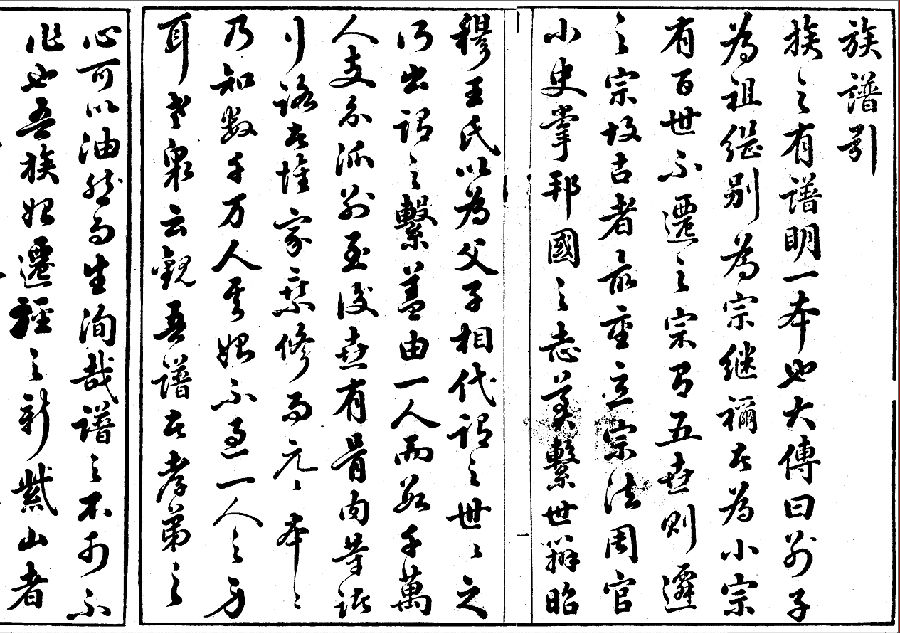 族譜引
族之有譜明一本也大傳曰別子
為祖繼別為宗继禰者為小宗
有百世不遷之宗有五世則遷
之宗故古者最重立宗法周官
小史掌邦國之志奠繫世辨昭
穆王氏以為父子相代謂之世〻之
所出謂之繫蓋由一人而數千萬
人支分派別至後世有骨肉等諸
行路者惟家乘修而元〻本〻
乃知數千万人其始不過一人之身
耳老泉云觀吾譜者孝弟之
心可以油然而生洵哉譜之不可不
作也吾族始遷之新紫山者